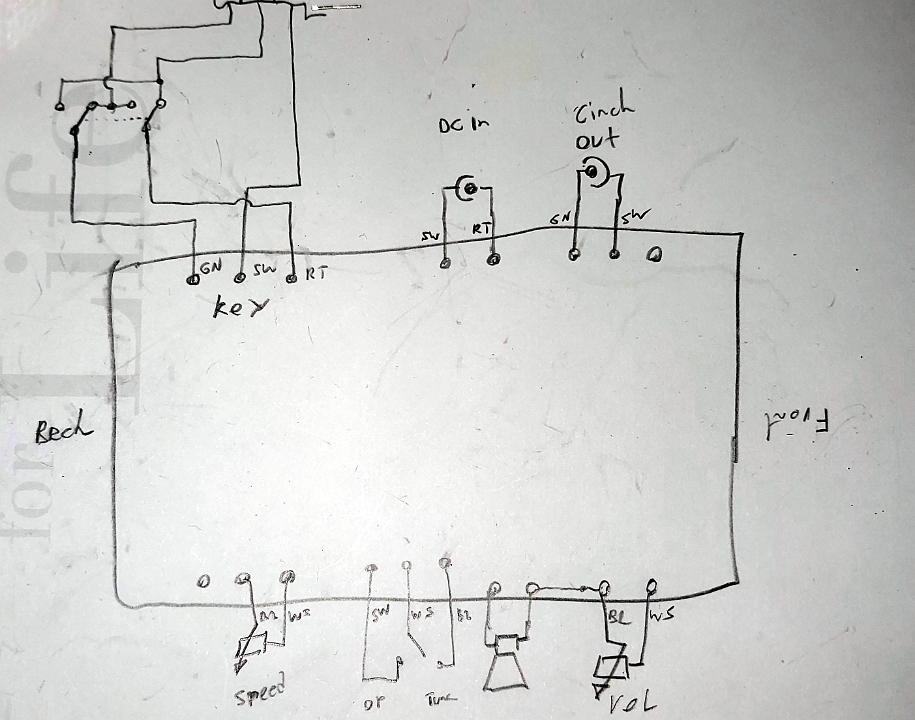 DC in
Cinch
out
GN
SW
SW
RT
GN
SW
RT
Key
Bech
Front
BR
WS
SW
WS
BR
BR
WS
Speed
OP
Tune
VOL
for Life